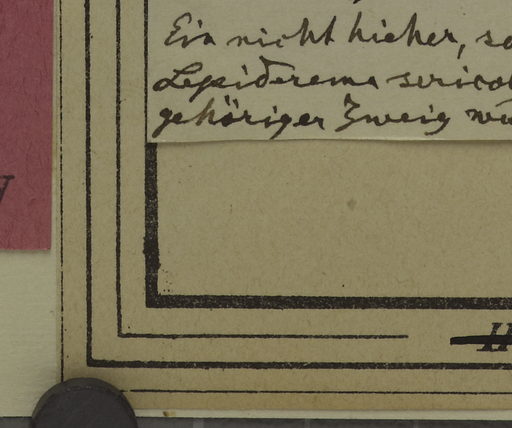 Ein nicht hieher, so
Lepiderema serico
gehöriger Zweig wu